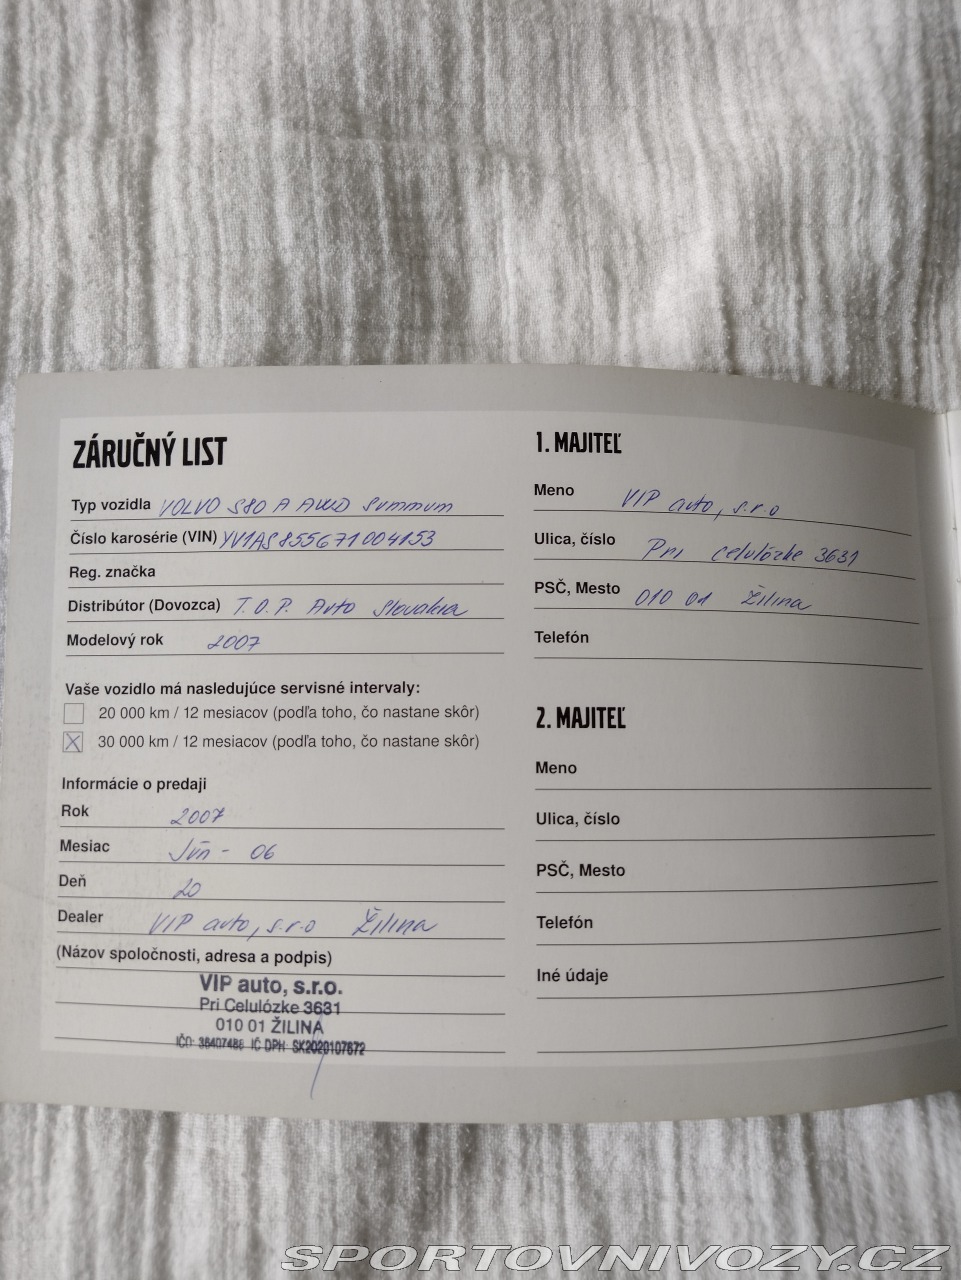 ZÁRUČNÝ LIST
Typ vozidla VOLVO S80 A AWD Summum
Číslo karosérie (VIN) YV1AS855671004153
Reg. značka
Distribútor (Dovozca) T.O.P. Auto Slovakia
Modelový rok 2007
Vaše vozidlo má nasledujúce servisné intervaly:
20 000 km / 12 mesiacov (podľa toho, čo nastane skôr)
X 30 000 km / 12 mesiacov (podľa toho, čo nastane skôr)
Informácie o predaji
Rok 2007
Mesiac Jún - 06
Deň 20
Dealer VIP auto, s.r.o Žilina
(Názov spoločnosti, adresa a podpis)
VIP auto, s.r.o.
Pri Celulózke 3631
010 01 ŽILINA
IČO: 36407486 IČ DPH: SK2020107672
1. MAJITEĽ
Meno VIP auto, s.r.o
Ulica, číslo Pri celulózke 3631
PSČ, Mesto 010 01 Žilina
Telefón
2. MAJITEĽ
Meno
Ulica, číslo
PSČ, Mesto
Telefón
Iné údaje
SPORTOVNIVOZY.CZ